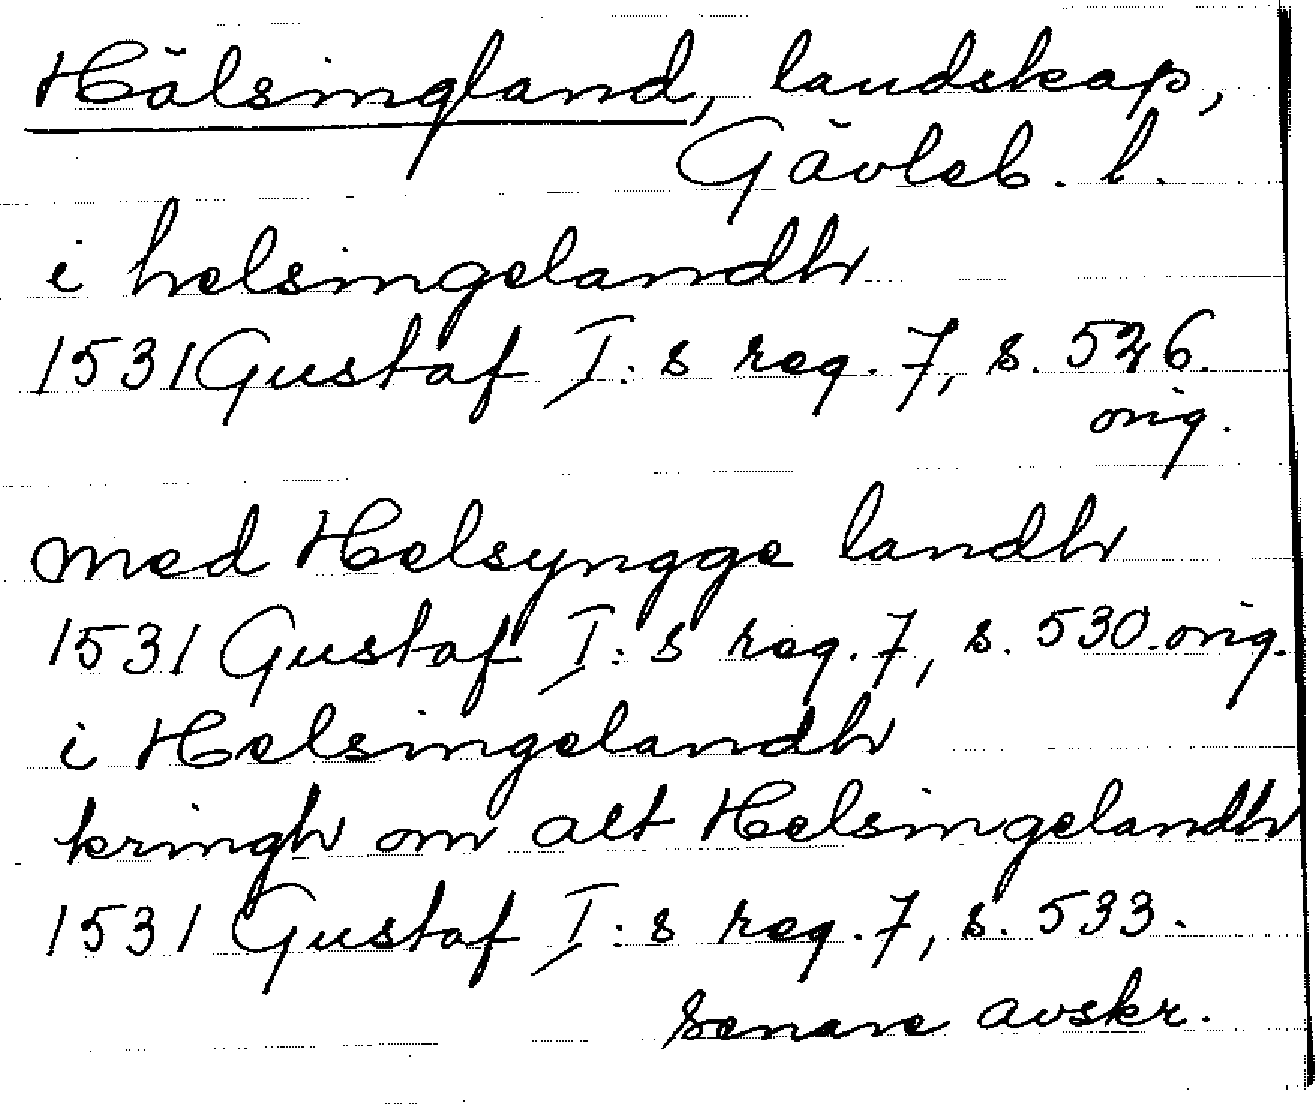 Hälsingland, landskap,
Gävleb. l.
i helsingelandh
1531 Gustaf I:s reg. 7, s. 526.
orig.
med Helsyngge landh
1531 Gustaf I:s reg. 7, s. 530. orig.
i Helsingelandh
kringh om alt Helsingelandh
1531 Gustaf I:s reg. 7, s. 533.
senare avskr.